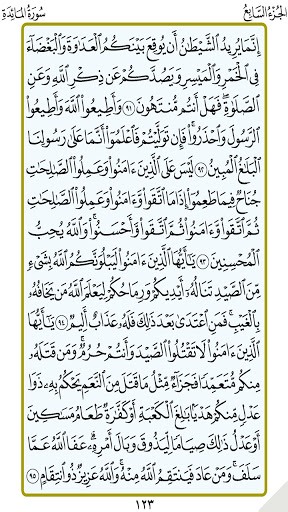 الجزء السابع سورة المائدة
إِنَّمَا يُرِيدُ الشَّيْطَٰنُ أَن يُوقِعَ بَيْنَكُمُ الْعَدَٰوَةَ وَالْبَغْضَآءَ
فِى الْخَمْرِ وَالْمَيْسِرِ وَيَصُدَّكُمْ عَن ذِكْرِ اللَّهِ وَعَنِ
الصَّلَوٰةِ ۖ فَهَلْ أَنتُم مُّنتَهُونَ ٩١ وَأَطِيعُوا اللَّهَ وَأَطِيعُوا
الرَّسُولَ وَاحْذَرُوا ۚ فَإِن تَوَلَّيْتُمْ فَاعْلَمُوٓا أَنَّمَا عَلَىٰ رَسُولِنَا
الْبَلَٰغُ الْمُبِينُ ٩٢ لَيْسَ عَلَى الَّذِينَ ءَامَنُوا وَعَمِلُوا الصَّٰلِحَٰتِ
جُنَاحٌ فِيمَا طَعِمُوٓا إِذَا مَا اتَّقَوا وَّءَامَنُوا وَعَمِلُوا الصَّٰلِحَٰتِ
ثُمَّ اتَّقَوا وَّءَامَنُوا ثُمَّ اتَّقَوا وَّأَحْسَنُوا ۗ وَاللَّهُ يُحِبُّ
الْمُحْسِنِينَ ٩٣ يَٰٓأَيُّهَا الَّذِينَ ءَامَنُوا لَيَبْلُوَنَّكُمُ اللَّهُ بِشَىْءٍ
مِّنَ الصَّيْدِ تَنَالُهُۥٓ أَيْدِيكُمْ وَرِمَاحُكُمْ لِيَعْلَمَ اللَّهُ مَن يَخَافُهُۥ
بِالْغَيْبِ ۚ فَمَنِ اعْتَدَىٰ بَعْدَ ذَٰلِكَ فَلَهُۥ عَذَابٌ أَلِيمٌ ٩٤ يَٰٓأَيُّهَا
الَّذِينَ ءَامَنُوا لَا تَقْتُلُوا الصَّيْدَ وَأَنتُمْ حُرُمٌ ۚ وَمَن قَتَلَهُۥ
مِنكُم مُّتَعَمِّدًا فَجَزَآءٌ مِّثْلُ مَا قَتَلَ مِنَ النَّعَمِ يَحْكُمُ بِهِۦ ذَوَا
عَدْلٍ مِّنكُمْ هَدْيًۢا بَٰلِغَ الْكَعْبَةِ أَوْ كَفَّٰرَةٌ طَعَامُ مَسَٰكِينَ
أَوْ عَدْلُ ذَٰلِكَ صِيَامًا لِّيَذُوقَ وَبَالَ أَمْرِهِۦ ۗ عَفَا اللَّهُ عَمَّا
سَلَفَ ۚ وَمَنْ عَادَ فَيَنتَقِمُ اللَّهُ مِنْهُ ۗ وَاللَّهُ عَزِيزٌ ذُو انتِقَامٍ ٩٥
١٢٣